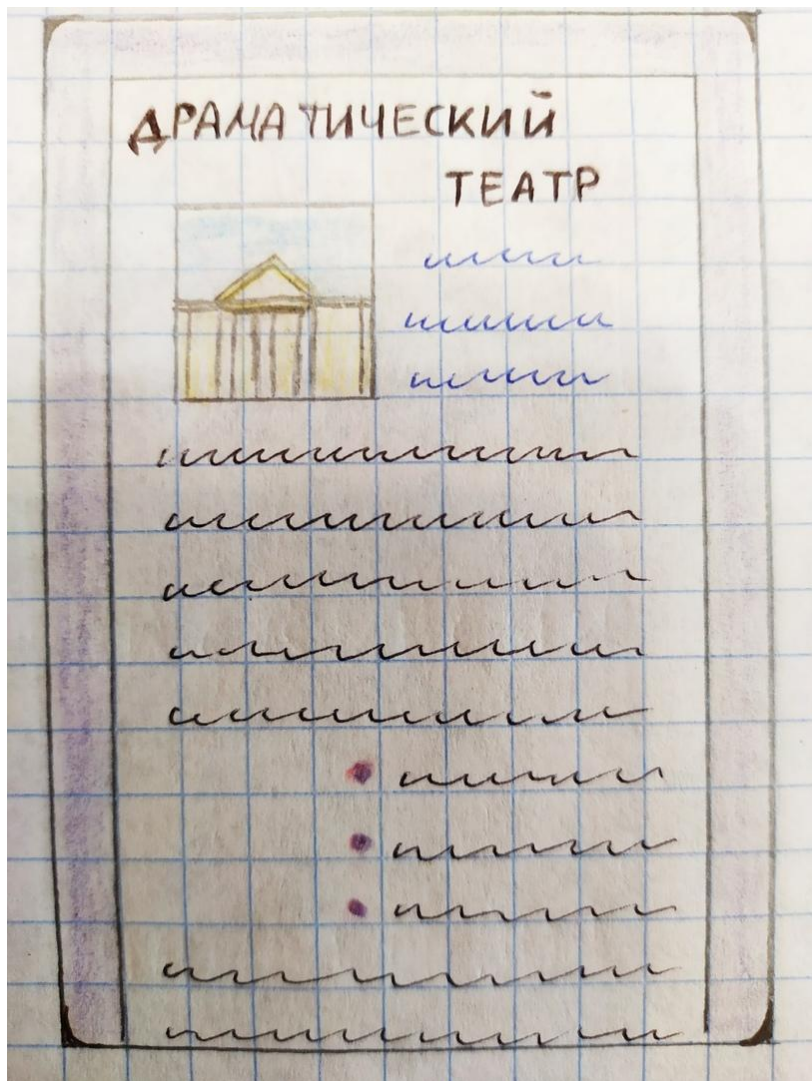 ДРАМАТИЧЕСКИЙ
ТЕАТР